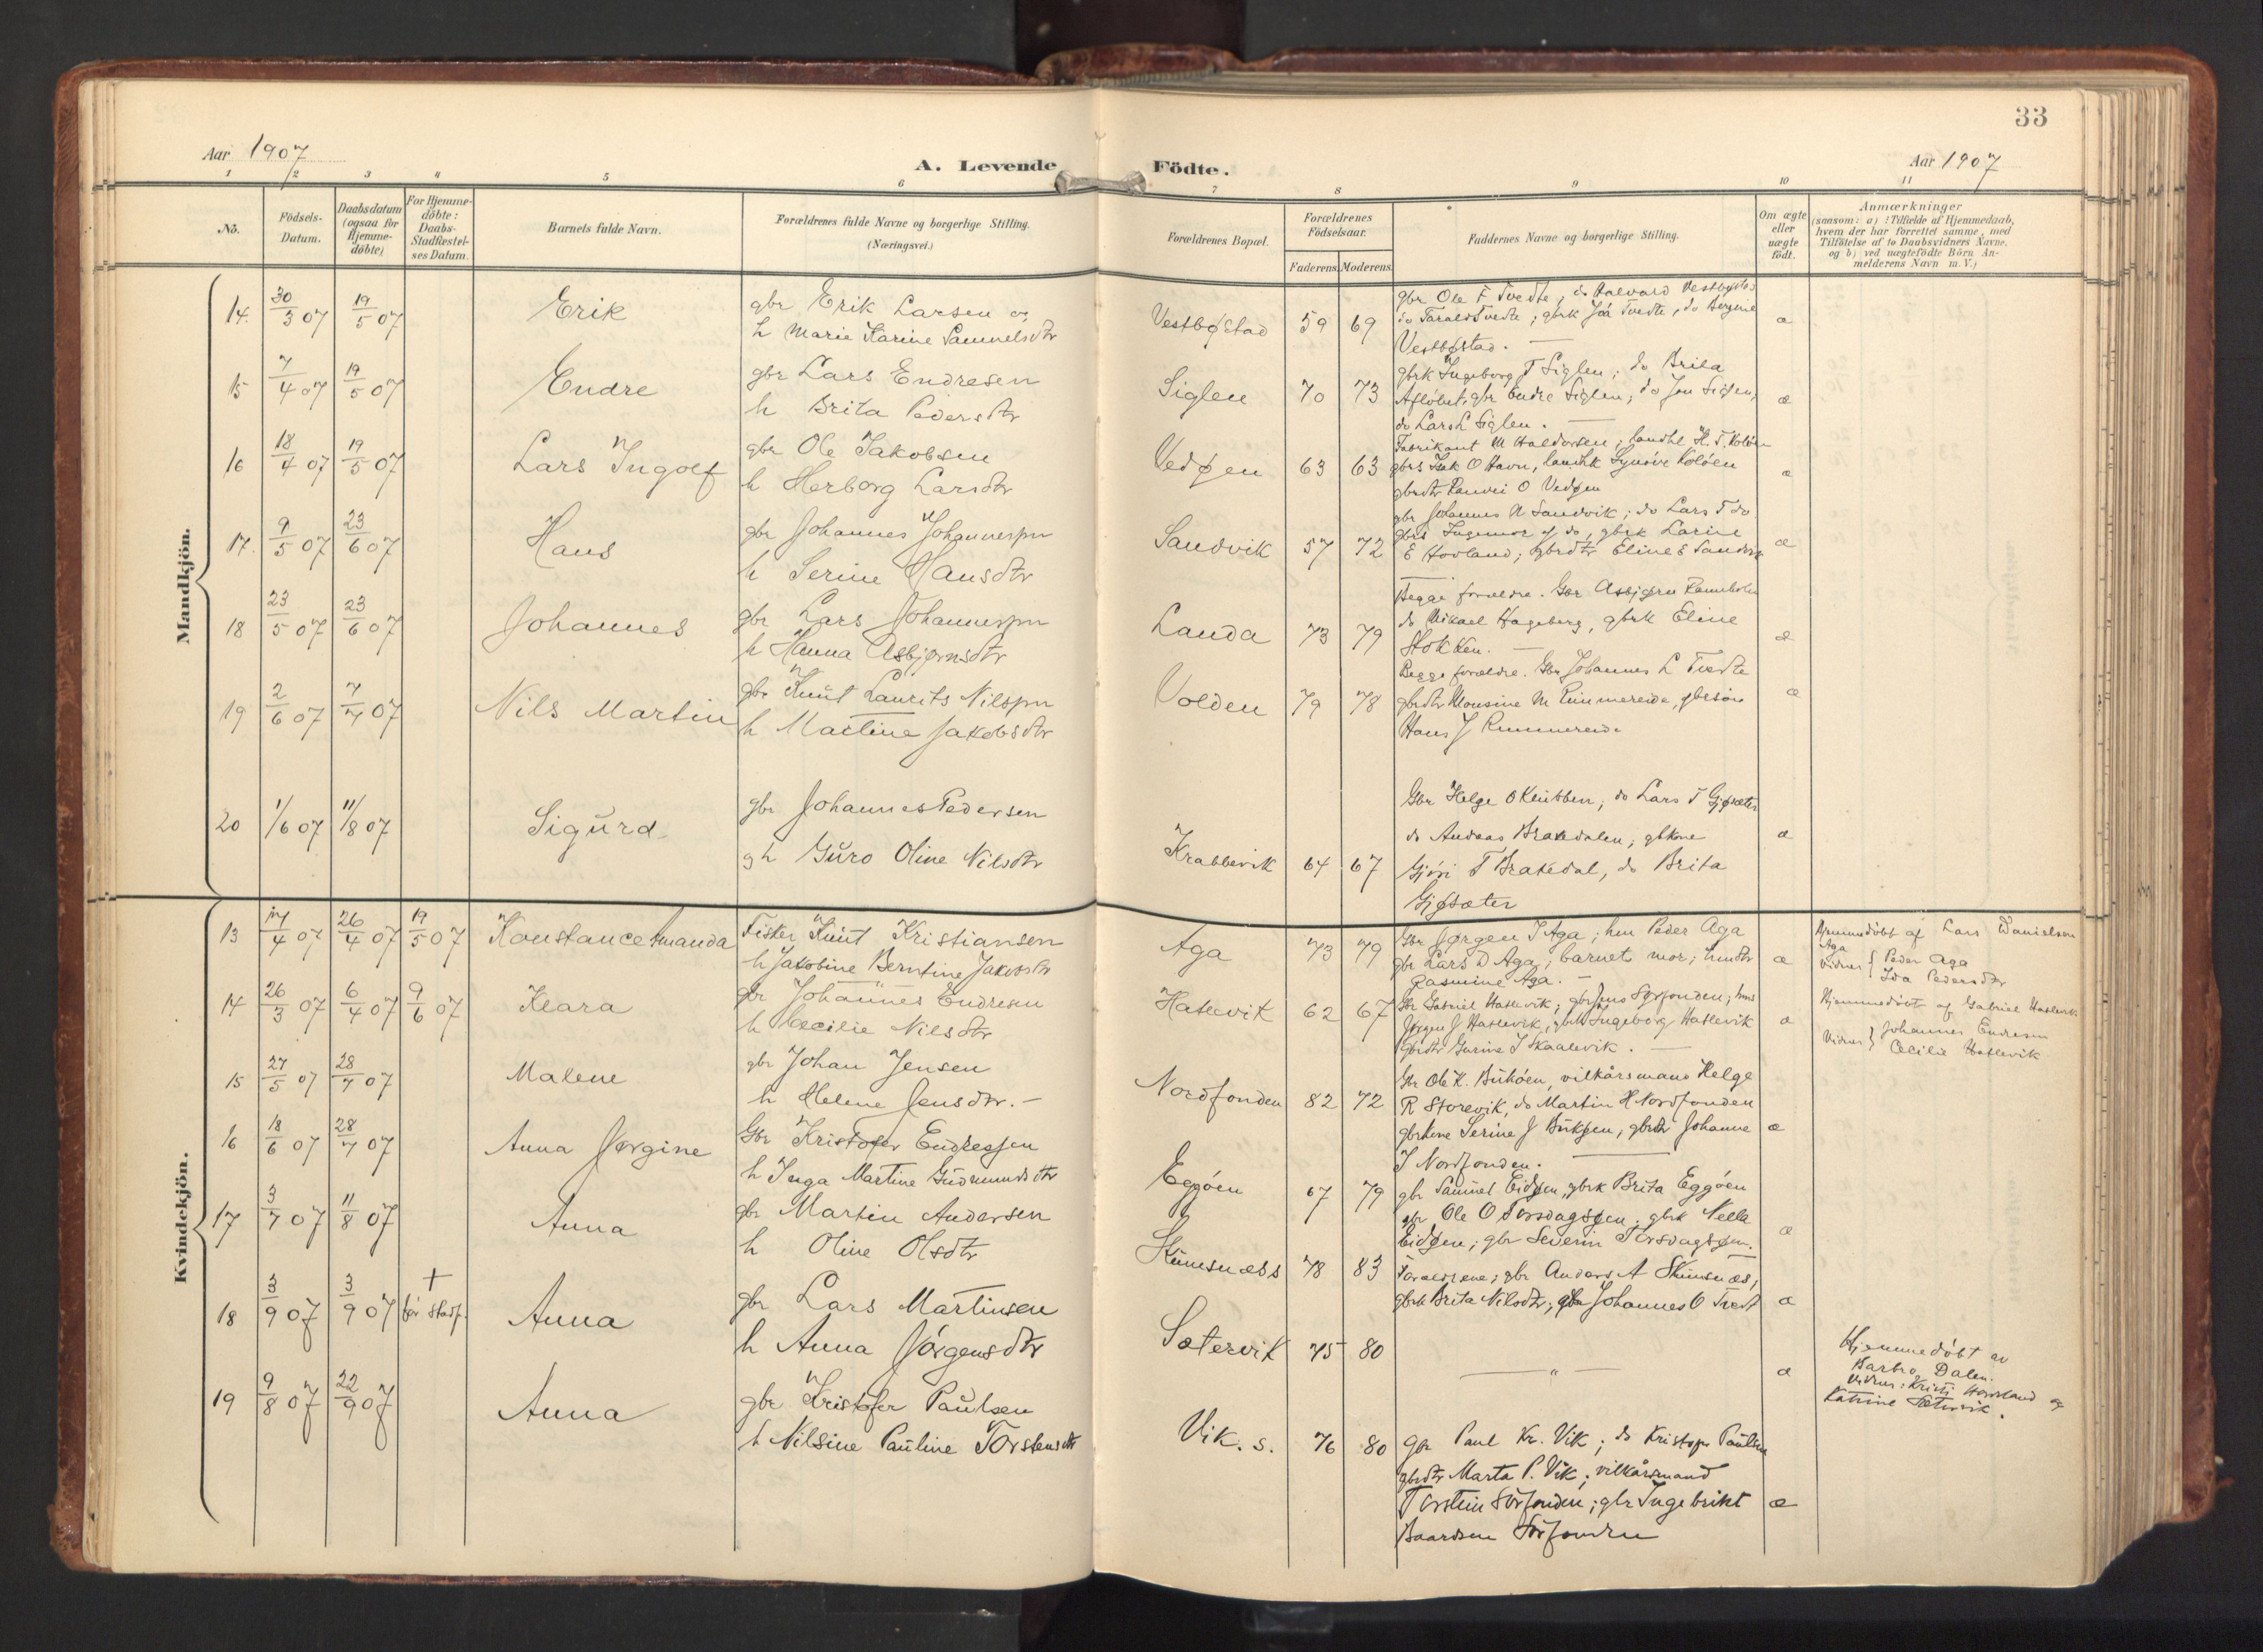 33
Aar 1907
A. Levende Födte.
Aar 1907
1 2 3 4 5 6 7 8 9 10 11
No.
Födsels-Datum.
Daabsdatum (ogsaa for Hjemme-döbte)
For Hjemme-döbte: Daabs-Stadfæstel-ses Datum.
Barnets fulde Navn.
Forældrenes fulde Navne og borgerlige Stilling.
(Næringsvei.)
Forældrenes Bopæl.
Forældrenes Födselsaar.
Faderens Moderens
Faddernes Navne og borgerlige Stilling.
Om ægte eller uægte födt.
Anmærkninger
(saasom: a) i Tilfælde af Hjemmedaab,
hvem der har forrettet samme, med
Tilföielse af to Daabsvidners Navne,
og b) ved uægtefödte Börn An-
melderens Navn m. V.)
Mandkjön.
14. 30/3 07 19/5 07 Erik
gbr Erik Larsen og
h Marie Karine Samuelsdtr
Vestbøstad 59 69
gbr Ole F Tvedte, do Halvard Vestbøstad
do Tarald Tvedte; gbrk Joa Tvedte, do Bergine
Vestbøstad. æ
15 7/4 07 19/5 07 Endre
gbr Lars Endresen
h Brita Pedersdtr
Siglen 70 73
gbrk Ingeborg T Siglen; do Brita
Afløbet; gbr Endre Siglen; do Jon Siglen,
do Lars L Siglen. æ
16 18/4 07 19/5 07 Lars Ingolf
gbr Ole Jakobsen
h Herborg Larsdtr
Vedøen 63 63
Fabrikant M Haldorsen; landhl H. T. Koløen
gbrs Isak O Havn, landhk Synøve Koløen
gbrdtr Ranvei O Vedøen æ
17. 9/5 07 23/6 07 Hans
gbr Johannes Johannespn
h Serine Hansdtr
Sandvik 57 72
gbr Johannes N Sandvik; do Lars T do
gbrs Ingemor J do, gbrk Larine
E Hovland; gbrdtr Eline E Sandvik æ
18 23/5 07 23/6 07 Johannes
gbr Lars Johannespn
h Hanna Asbjørnsdtr
Landa 73 79
Begge forældre. Gbr Asbjørn Rameholm
do Mikael Hageberg, gbrk Eline
Stokken. æ
19 2/6 07 7/7 07 Nils Martin
gbr Knut Laurits Nilspn
h Martine Jakobsdtr
Volden 79 78
Begge forældre. Gbr Johannes L Tvedte
gbrdtr Monsine M Rimmereide, gbrsøn
Hans J Rimmereide æ
20 1/6 07 11/8 07 Sigurd
gbr Johannes Pedersen
gh Guro Oline Nilsdtr
Krabbevik 64 67
Gbr Helge O Klubben; do Lars T Gjøsæter
do Andeas Brakedalen; gbkone
Gjøri T Brakedal, do Brita
Gjøsæter æ
Kvindekjön.
13 17/4 07 26/4 07 19/5 07 Konstance Amanda
Fisker Knut Kristiansen
h Jakobine Berntine Jakobsdtr
Aga 73 79
Gbr Jørgen J Aga; hm Peder Aga
gbr Lars D Aga; barnets mor; hmdtr
Rasmine Aga. æ
Hjemmedøbt af Lars Danielsen
Aga
Vidner { Peder Aga
Ida Pedersdtr
14 26/3 07 6/4 07 9/6 07 Klara
gbr Johannes Endresen
h Cecilie Nilsdtr
Hatlevik 62 67
Gbr Gabriel Hatlevik; gbr Jens Sørfonden; hms
Jørgen J Hatlevik, gbrk Ingeborg Hatlevik
gbrdtr Gurine J Skaalevik. æ
Hjemmedøbt af Gabriel Hatlevik
Vidner } Johannes Endresen
Cecilie Hatlevik
15 27/5 07 28/7 07 Malene
gbr Johan Jensen
h Helene Jensdtr.
Nordfonden 82 72
Gbr Ole K. Bukøen, vilkårsmann Helge
R Storevik, do Martin H Nordfonden
gbrkone Serine J Bukøen, gbrdtr Johanne
J Nordfonden. æ
16 18/6 07 28/7 07 Anna Jørgine
Gbr Kristofer Endressen
h Inga Martine Gudmundsdtr
Eggøen 67 79
gbr Samuel Eidøen, gbrk Brita Eggøen
gbr Ole O Torsdagsøen, gbrk Nella
Eidøen; gbr Severin Torsdagsøen. æ
17 3/7 07 11/8 07 Anna
gbr Martin Andersen
h Oline Olsdtr
Skumsnæss 78 83
Forældrene; gbr Anders A Skumsnæs;
gbrk Brita Nilsdtr; gbr Johannes O Tvedt æ
18 3/9 07 3/9 07 † før stadf. Anna
gbr Lars Martinsen
h Anna Jørgensdtr
Sætervik 75 80
— „ — æ
Hjemmedøbt av
Barbro Dalen.
Vidner: Kristi Hovland og
Katrine Sætervik.
19 9/8 07 22/9 07 Anna
gbr Kristofer Paulsen
h Nilsine Pauline Torstensdtr
Vik. s. 76 80
Gbr Paul Kr. Vik; do Kristofer Paulsen
gbrdtr Marta P. Vik; vilkårsmand
Torstein Sørfonden; gbr Ingebrikt
Baardsen Sørfonden æ